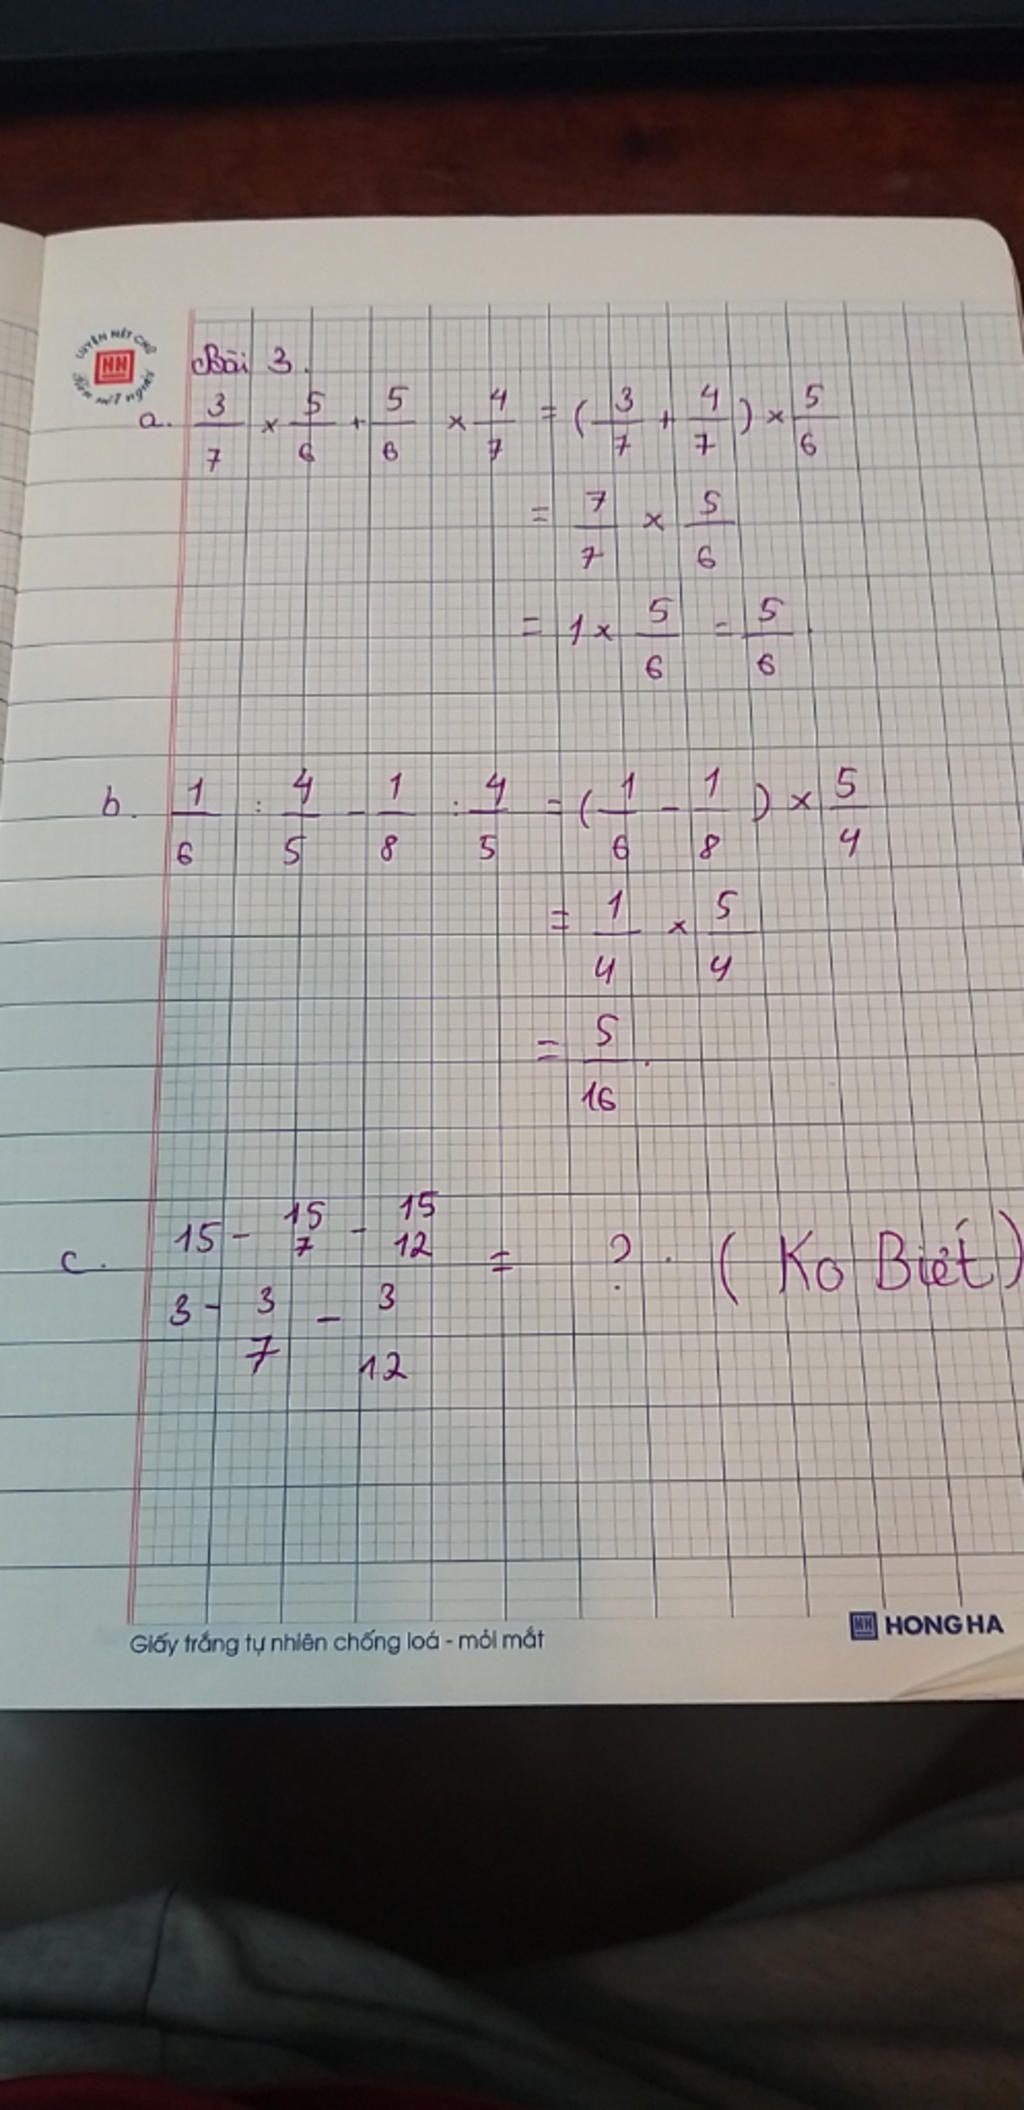 LUYỆN NÉT CHỮ
Rèn nết người
Bài 3.
a. 3/7 × 5/6 + 5/6 × 4/7 = (3/7 + 4/7) × 5/6
= 7/7 × 5/6
= 1 × 5/6 = 5/6.
b. 1/6 : 4/5 - 1/8 : 4/5 = (1/6 - 1/8) × 5/4
= 1/4 × 5/4
= 5/16.
15 - 15/7 - 15/12
c. = ?. (Ko Biết)
3 - 3/7 - 3/12
Giấy trắng tự nhiên chống loá - mỏi mắt
HH HONG HA